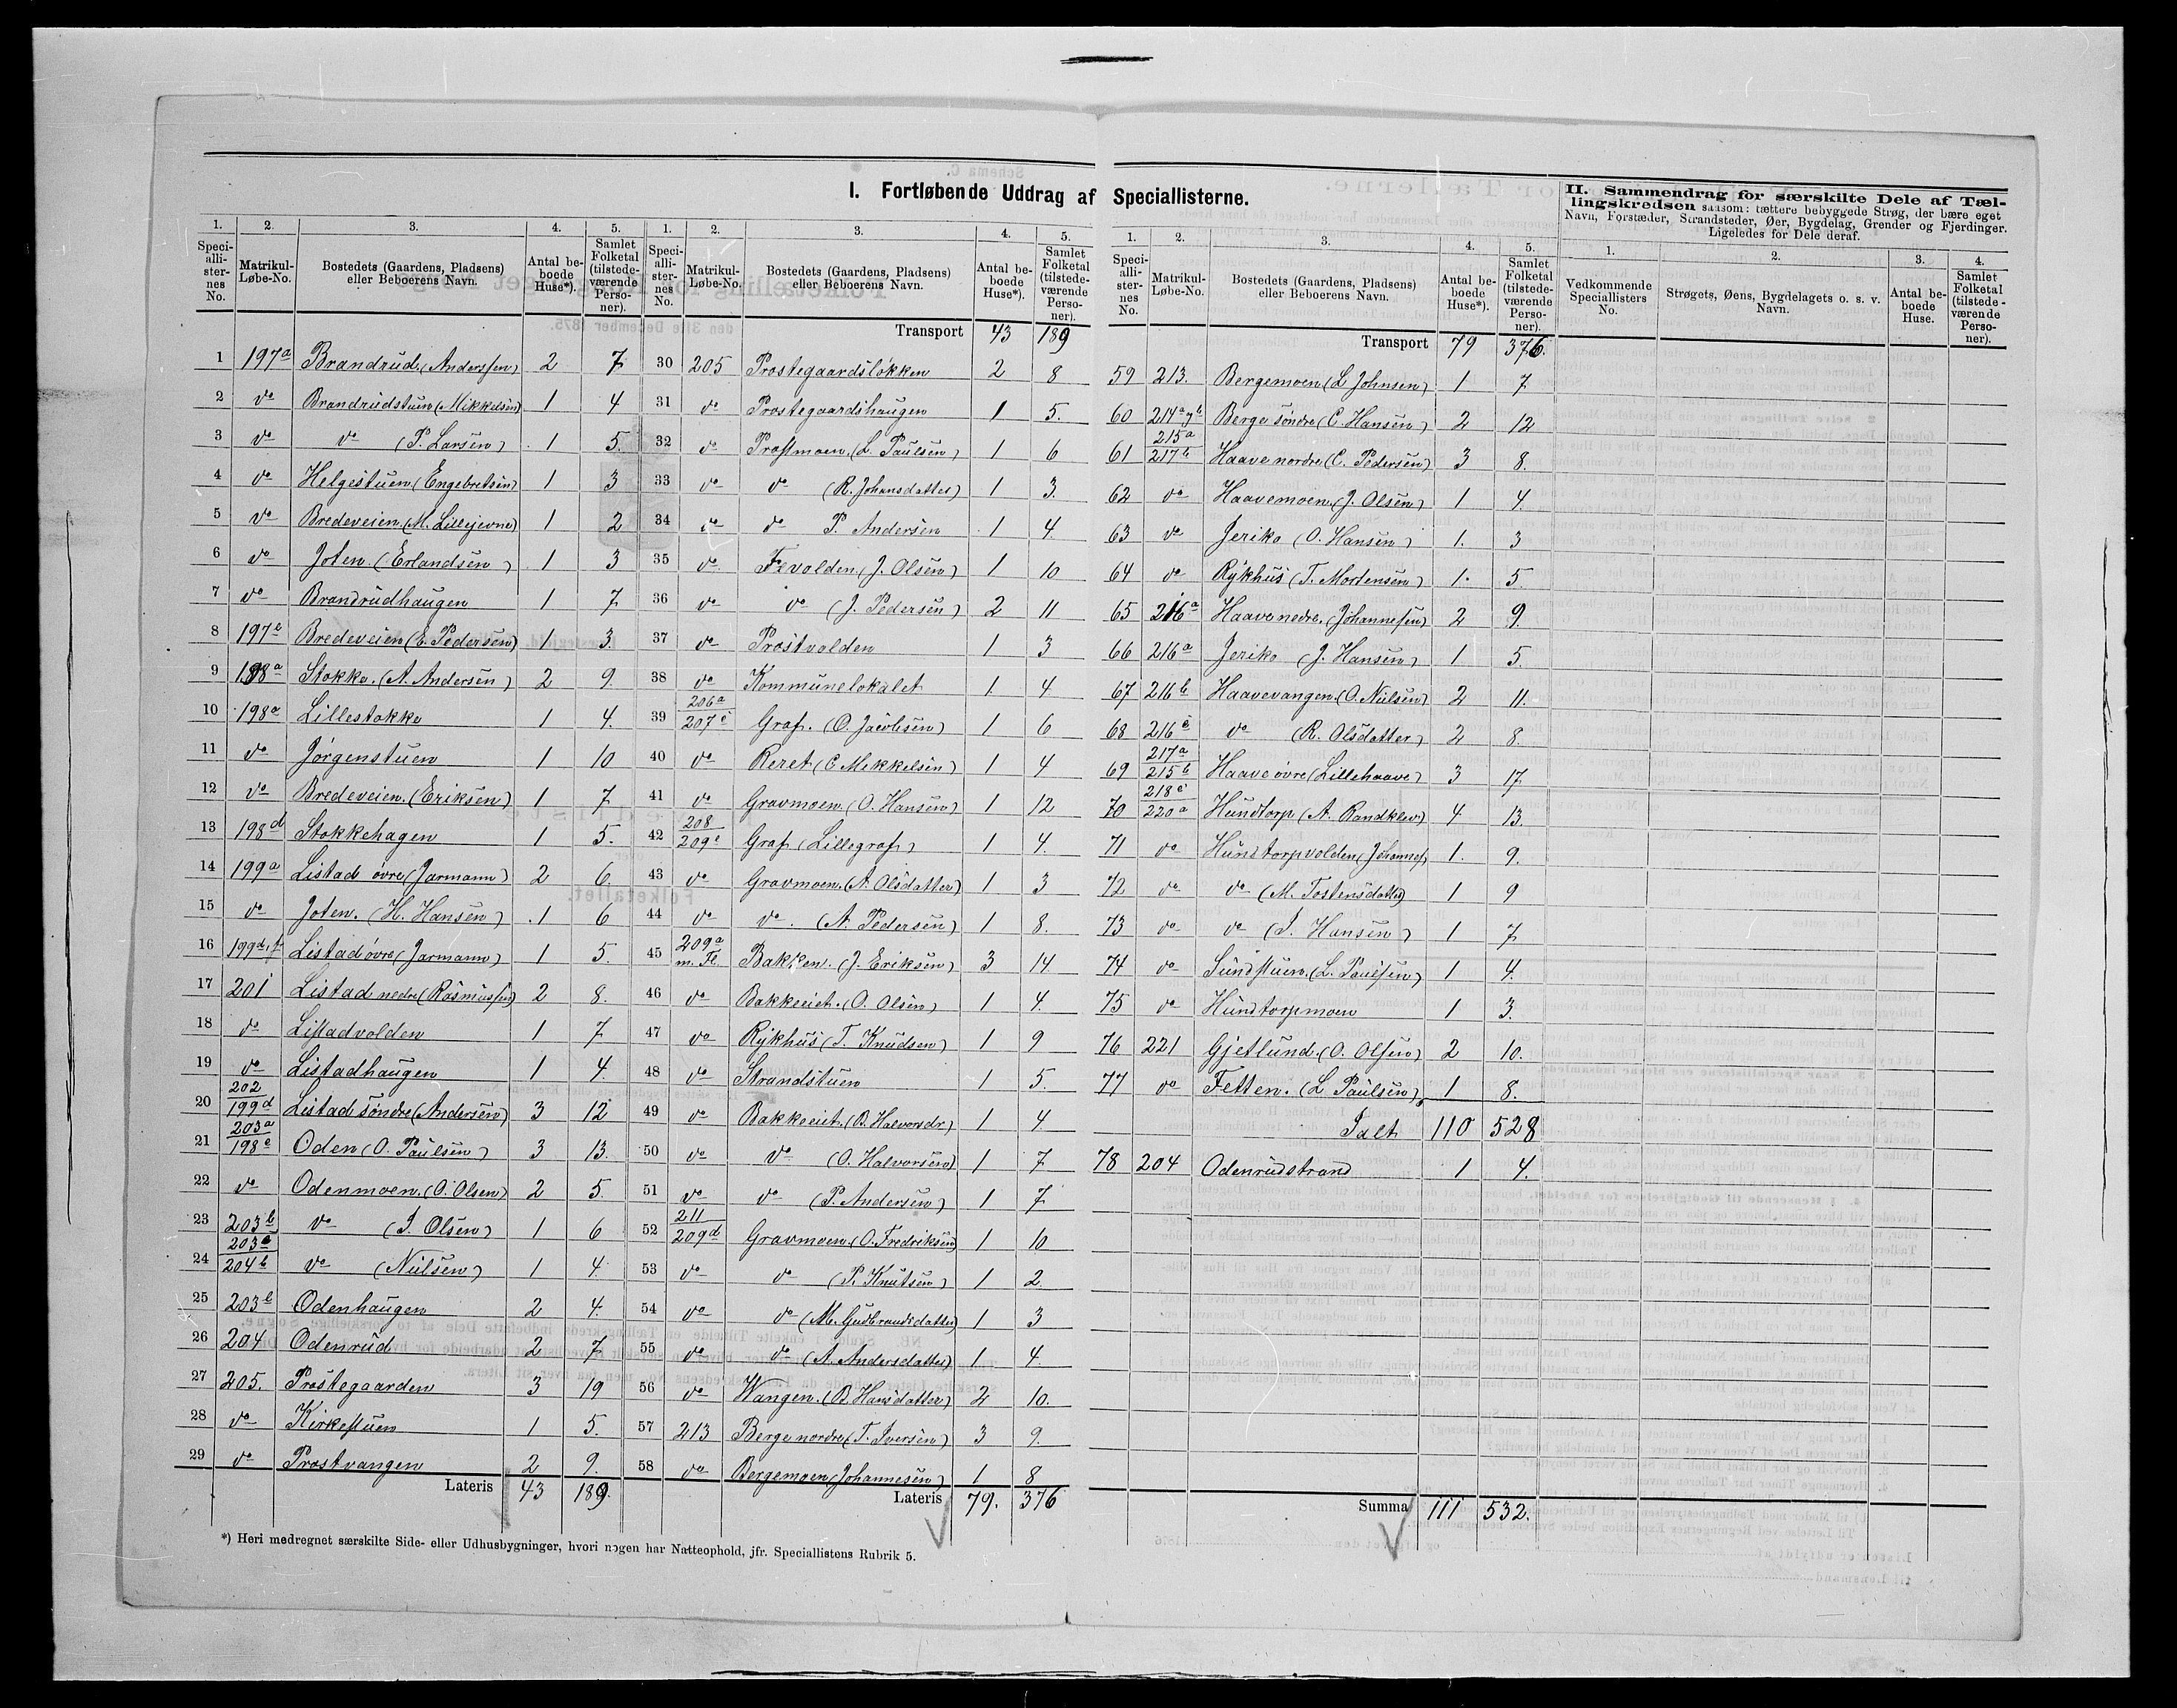 I. Fortløbende Uddrag af Speciallisterne.
II. Sammendrag for særskilte Dele af Tæl-
lingskredsen saasom: tættere bebyggede Strøg, der bære eget
Navn, Forstæder, Strandsteder, Øer, Bygdelag, Grender og Fjerdinger.
Ligeledes for Dele deraf.
1. 2. 3. 4. 5.
Speci-alli-ster-nes No. Matrikul-Løbe-No. Bostedets (Gaardens, Pladsens) eller Beboerens Navn. Antal be-boede Huse*). Samlet Folketal (tilstede-værende Perso-ner).
1 197a Brandrud (Anderssen) 2 7
2 do Brandrudstuen (Mikkelsen) 1 4
3 do do (P. Larsen) 1 5.
4 do Helgestuen (Engebretsen) 1 3
5 do Bredeveien (M. Lillejevne) 1 2
6 do Joten (Erlandsen) 1 3
7 do Brandrudhaugen 1 7
8 197e Bredeveien (E. Pedersen) 1 3.
9 198a Stokke. (A. Andersen) 2 9.
10 198a Lillestokke 1 4.
11 do Jørgenstuen 1 10
12 do Bredeveien. (Eriksen) 1 7
13 198d Stokkehagen 1 5.
14 199a Listad øvre (Jarmann) 2 6.
15 do Joten. (H. Hansen) 1 6
16 199d,f Listad øvre (Jarmann) 1 5.
17 201 Listad nedre (Rasmussen) 2 8.
18 do Listadvolden 1 7
19 do Listadhaugen 1 4.
20 202 199d Listad søndre (Andersen) 3 12
21 203a 198e Oden (O. Paulsen) 3 13.
22 do Odenmoen. (O. Olsen) 2 5.
23 203b do (J. Olsen) 1 6
24 203c 204b do (Nielsen) 1 4.
25 203b Odenhaugen 2 4.
26 204 Odenrud 2 7
27 205. Prostegaarden 3 19
28 do Kirkestuen 1 5.
29 do Prostvangen 2 9.
Lateris 43 189.
1. 2. 3. 4. 5.
Speci-alli-ster-nes No. Matrikul-Løbe-No. Bostedets (Gaardens, Pladsens) eller Beboerens Navn. Antal be-boede Huse*). Samlet Folketal (tilstede-værende Perso-ner).
Transport 43 189
30 205 Prostegaardsløkken 2 8
31 do Prostegaardshaugen 1 5.
32 do Prostmoen. (L. Paulsen) 1 6
33 do do (R. Johansdatter) 1 3.
34 do do P. Andersen 1 4.
35 do Fevolden. (J. Olsen) 1 10
36 do do (J. Pedersen) 2 11
37 do Prostvolden 1 3
38 do Kommunelokalet 1 4.
39 206a 207c Graf. (O. Jacobsen) 1 6
40 do Reret (C. Mekkelsen) 1 4
41 do Gravmoen. (O. Hansen) 1 12
42 208 209c Graf (Lillegraf) 1 4.
43 do Gravmoen. (A. Olsdatter) 1 3
44 do do (A. Pedersen) 1 8.
45 209a m. Fl. Bakken. (J. Eriksen) 3 14.
46 do Bakkeeiet. (O. Olsen) 1 4.
47 do Rykhus (T. Knudsen) 1 9
48 do Strandstuen 1 5.
49 do Bakkeeiet. (B. Halvorsdr) 1 4
50 do do (O. Halvorsen) 1 7
51 do do (P. Andersen) 1 7
52 211 209d Gravmoen. (O. Fredriksen) 1 10
53 do do (P. Knutsen) 1 2.
54 do do (M. Gudbrandsdatter) 1 3
55 do do (A. Andersdatter) 1 4.
56 do Wangen. (B. Hansdatter) 2 10.
57 213 Berge nordre (T. Iversen) 3 9.
58 do Bergemoen (Johannesen) 1 8
Lateris 79. 376
1. 2. 3. 4. 5.
Speci-alli-ster-nes No. Matrikul-Løbe-No. Bostedets (Gaardens, Pladsens) eller Beboerens Navn. Antal be-boede Huse*). Samlet Folketal (tilstede-værende Perso-ner).
Transport 79 376.
59 213. Bergemoen (L. Johnsen) 1 7.
60 214a,b Berge søndre (C. Hansen) 2 12
61 215a 217b Haave nordre (C. Pedersen) 3 8.
62 do Haavemoen. (J. Olsen) 1 4.
63 do Jeriko (O. Hansen) 1. 3
64 do Rykhus (T. Mortensen) 1. 5.
65 216a Haave nedre. (Johannesen) 2 9.
66 216a Jeriko (J. Hansen) 1 5.
67 216b Haavevangen. (O. Nielsen) 2 11.
68 216c do (R. Olsdatter) 2 8.
69 217a 215b Haave øvre (Lillehaave) 3 17
70 218c 220a Hundtorp (A. Randklev) 4 13.
71 do Hundtorpvolden (Johannes) 1. 9.
72 do do (M. Tostensdatter) 1 9
73 do do (J. Hansen) 1 7
74 do Sundstuen. (L. Paulsen) 1 4.
75 do Hundtorpmoen 1 3.
76 221 Gjetlund. (O. Olsen) 2 10.
77 do Fetten. (L. Paulsen) 1 8.
Ialt 110 528
78 204 Odenrudstrand 1 4.
Summa 111 532.
1. 2. 3. 4.
Vedkommende Speciallisters No. Strøgets, Øens, Bygdelagets o. s. v. Navn. Antal be-boede Huse. Samlet Folketal (tilstede-værende Perso-ner).
*) Heri medregnet særskilte Side- eller Udhusbygninger, hvori nogen har Natteophold, jfr. Speciallistens Rubrik 5.